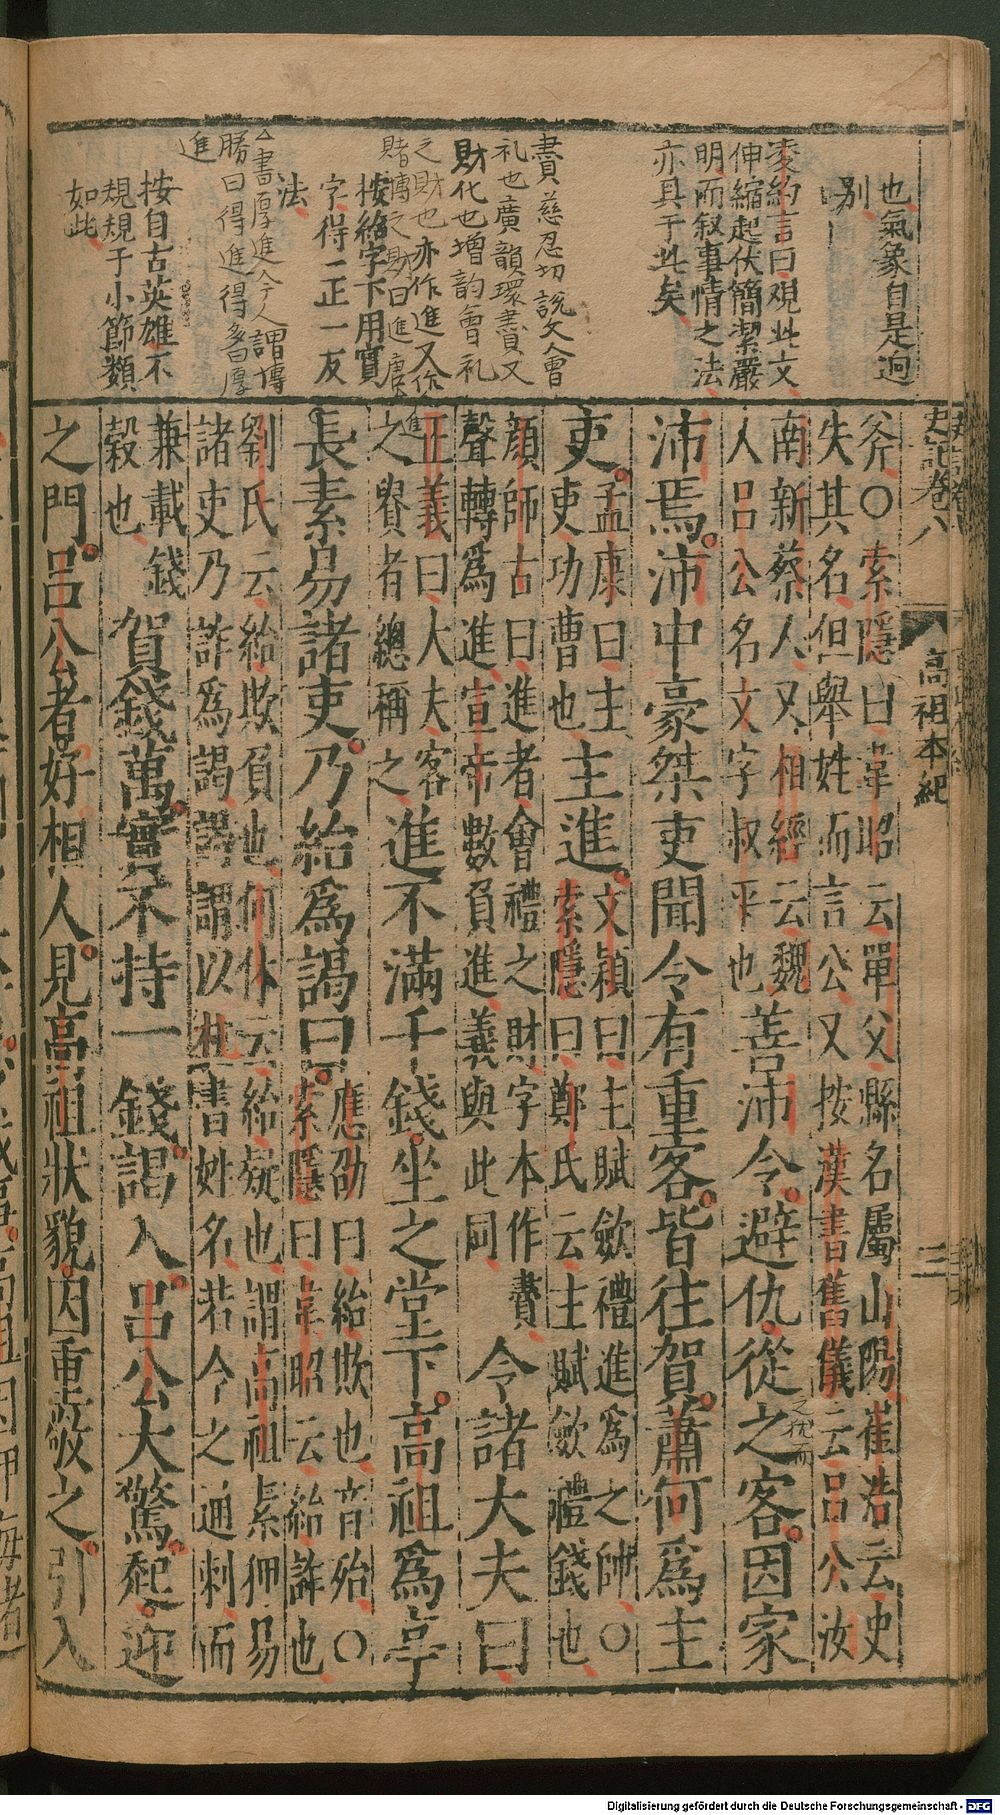 也氣象自是迥
別
凌約言曰觀此文
伸縮起伏簡潔嚴
明而叙事情之法
亦具于此矣
賮慈忍切説文會
礼也廣韻環賮又
財化也增韵會礼
之財也亦作進又作
賭博之財曰進
按紿字下用實
字得二正一反
法
書厚進今人謂博
勝曰得進得多曰厚
進
按自古英雄不
規規于小節類
如此
史記卷八
高祖本紀
三
斧○索隱曰韋昭云單父縣名屬山陽崔浩云史
失其名但舉姓而言公又按漢書舊儀云呂公汝
南新蔡人又相經云魏
人呂公名文字叔平也
善沛令避仇從之客因家
沛焉沛中豪桀吏聞令有重客皆往賀蕭何爲主
吏孟康曰主
吏功曹也
主進文穎曰主賦斂禮進爲之帥○
索隱曰鄭氏云主賦斂禮錢也
顔師古曰進者會禮之財字本作賮
聲轉爲進宣帝數負進義與此同
令諸大夫曰
正義曰大夫客
之貴者總稱之
進不滿千錢坐之堂下高祖爲亭
長素易諸吏乃紿爲謁曰應劭曰紿欺也音殆○
索隱曰韋昭云紿詐也
劉氏云紿欺負也何休云紿疑也謂高祖素狎易
諸吏乃詐爲謁謁謂以札書姓名若今之通刺而
兼載錢
穀也
賀錢萬實不持一錢謁入呂公大驚起迎
之門呂公者好相人見高祖狀貌因重敬之引入
Digitalisierung gefördert durch die Deutsche Forschungsgemeinschaft - DFG